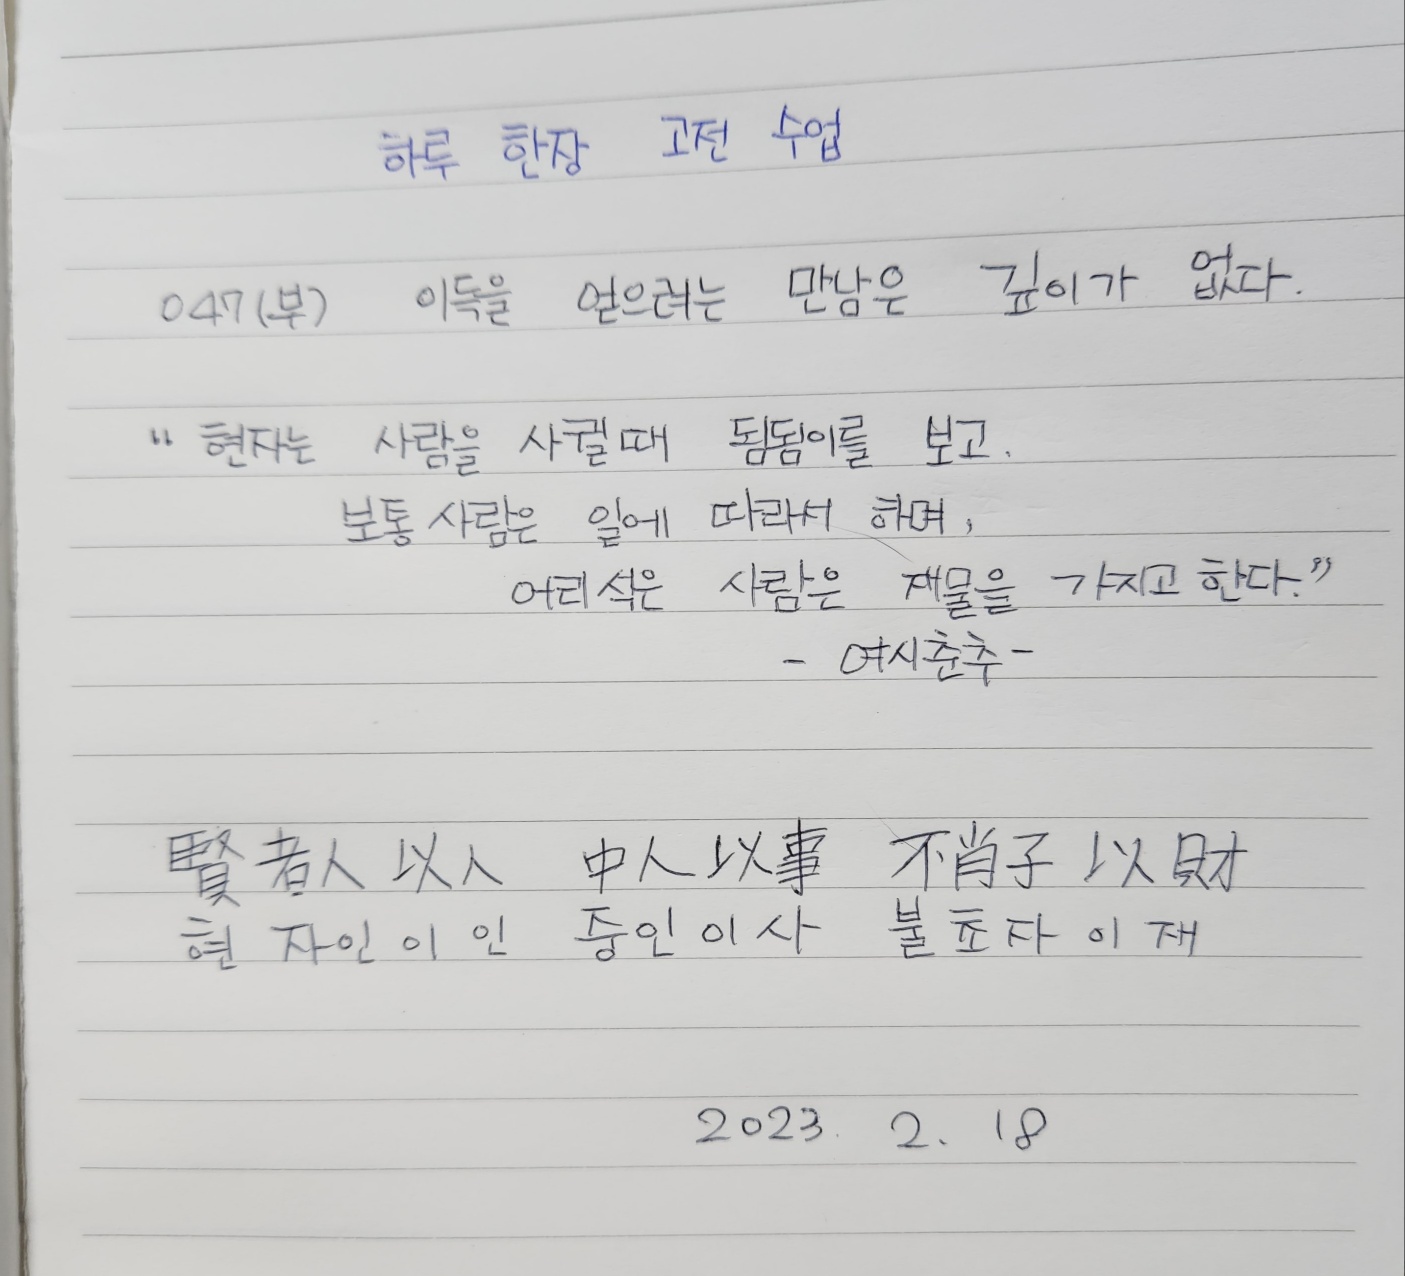 하루 한장 고전 수업
047(부) 이득을 얻으려는 만남은 깊이가 없다.
“현자는 사람을 사귈때 됨됨이를 보고.
보통 사람은 일에 따라서 하며,
어리석은 사람은 재물을 가지고 한다.”
- 여시춘추 -
賢者人以人 中人以事 不肖子以財
현자인이인 중인이사 불초자이재
2023. 2. 18